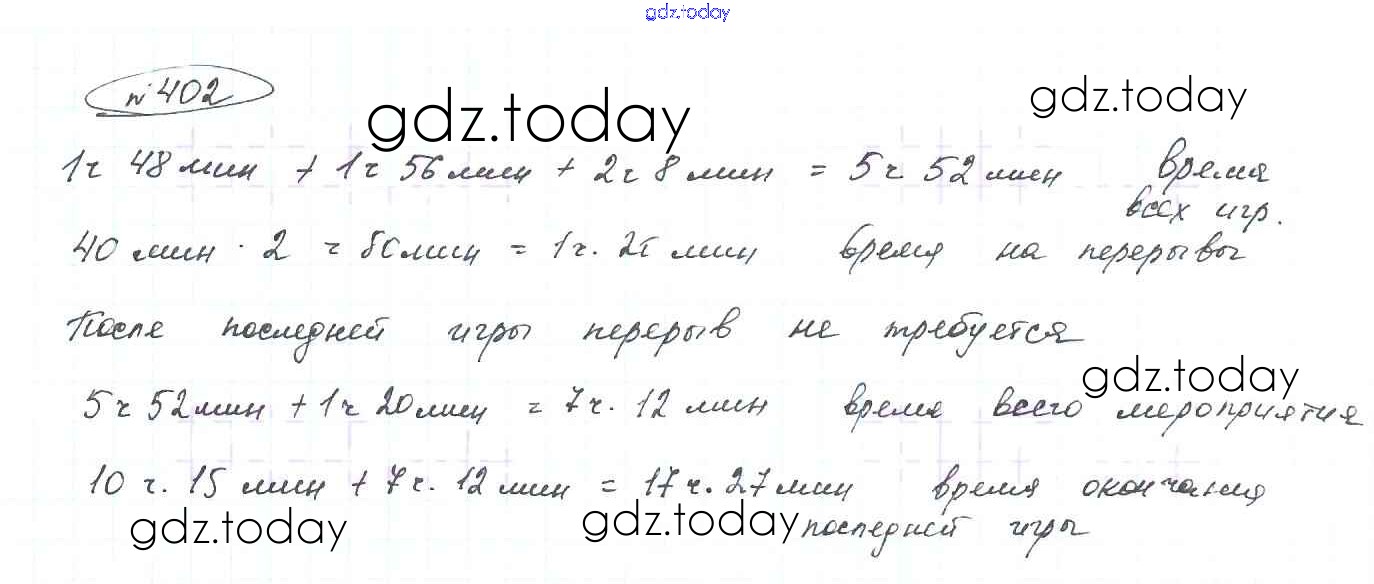 gdz.today
№402
gdz.today
gdz.today
1ч 48 мин + 1ч 56 мин + 2ч 8 мин = 5ч 52 мин время
всех игр.
40 мин · 2 = 80 мин = 1ч. 20 мин время на перерывы
После последней игры перерыв не требуется
gdz.today
5ч 52 мин + 1ч 20 мин = 7ч. 12 мин время всего мероприятия
10 ч. 15 мин + 7ч. 12 мин = 17ч. 27 мин время окончания
gdz.today
gdz.today
последней игры